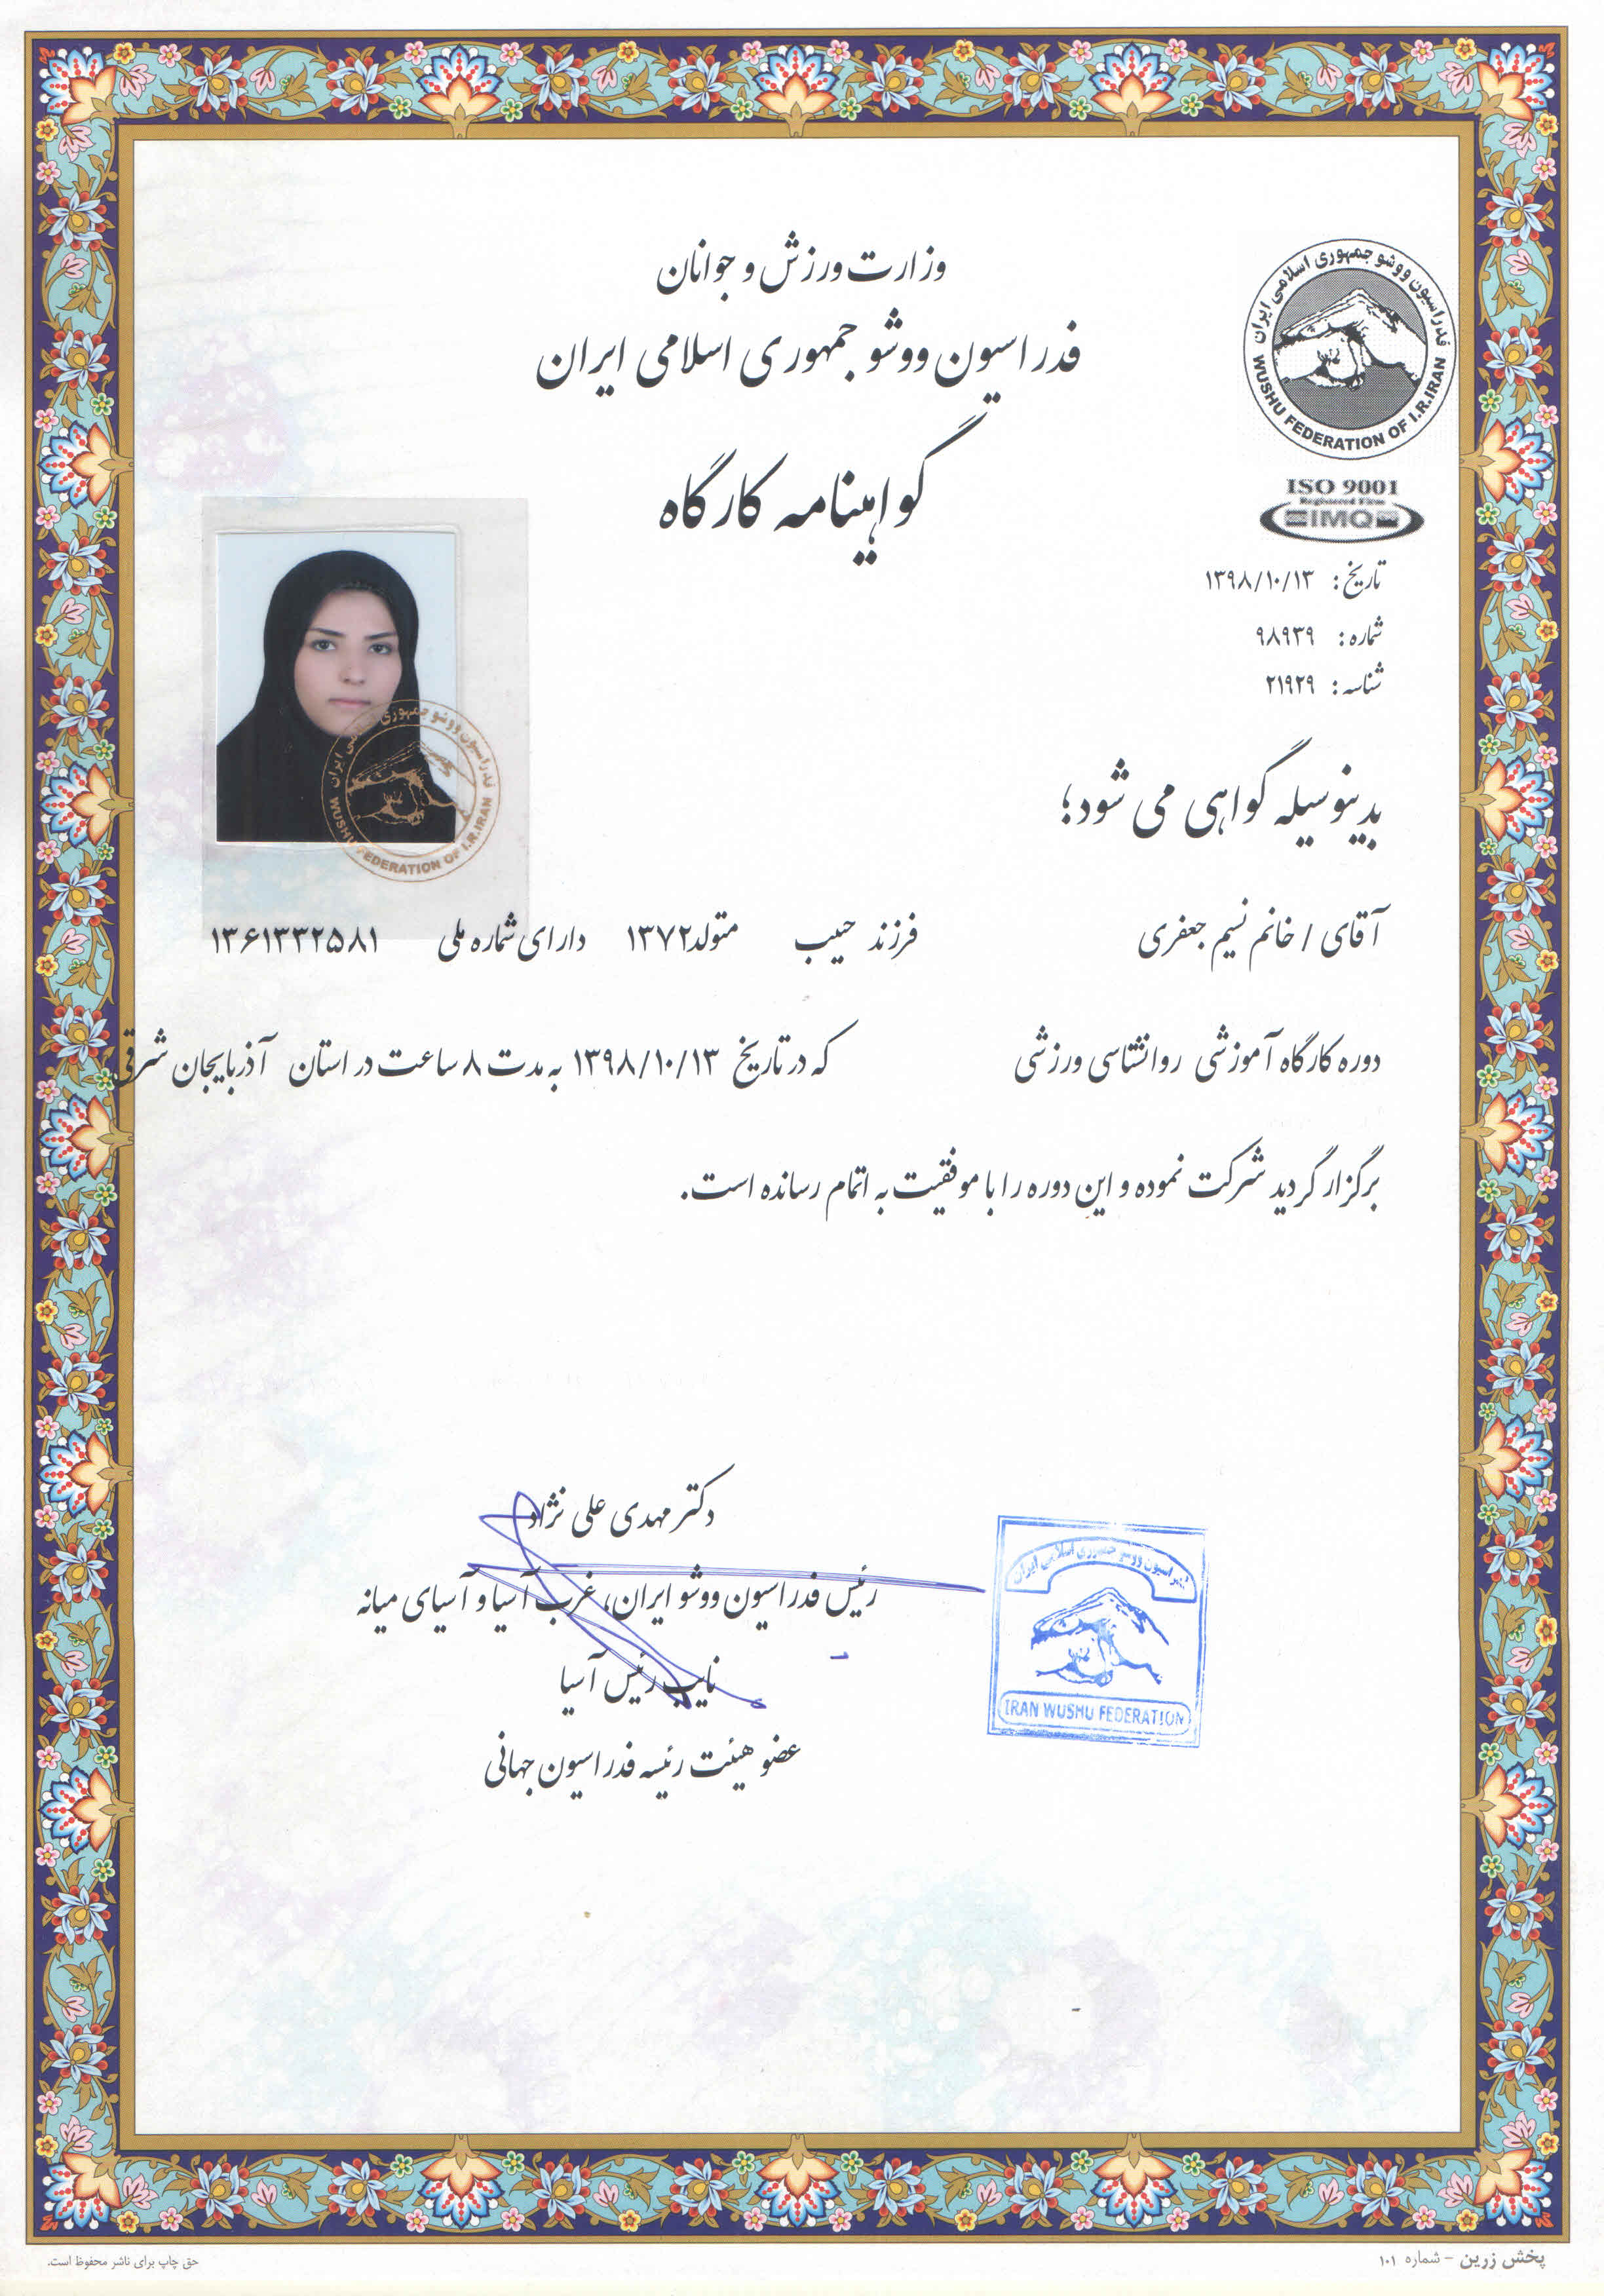 وزارت ورزش و جوانان
فدراسیون ووشو جمهوری اسلامی ایران
گواهینامه کارگاه
فدراسیون ووشو جمهوری اسلامی ایران
WUSHU FEDERATION OF I.R.IRAN
ISO 9001
Registered Firm
IMQ
تاریخ: ۱۳۹۸/۱۰/۱۳
شماره: ۹۸۹۳۹
شناسه: ۲۱۹۲۹
فدراسیون ووشو جمهوری اسلامی ایران
WUSHU FEDERATION OF I.R.IRAN
بدینوسیله گواهی می شود؛
آقای / خانم نسیم جعفری فرزند حبیب متولد ۱۳۷۲ دارای شماره ملی ۱۳۶۱۳۳۲۵۸۱
دوره کارگاه آموزشی روانشناسی ورزشی که در تاریخ ۱۳۹۸/۱۰/۱۳ به مدت ۸ ساعت در استان آذربایجان شرقی
برگزار گردید شرکت نموده و این دوره را با موفقیت به اتمام رسانده است.
دکتر مهدی علی نژاد
رئیس فدراسیون ووشو ایران، غرب آسیا و آسیای میانه
نایب رئیس آسیا
عضو هیئت رئیسه فدراسیون جهانی
فدراسیون ووشو جمهوری اسلامی ایران
IRAN WUSHU FEDERATION
پخش زرین - شماره ۱۰۱
حق چاپ برای ناشر محفوظ است.